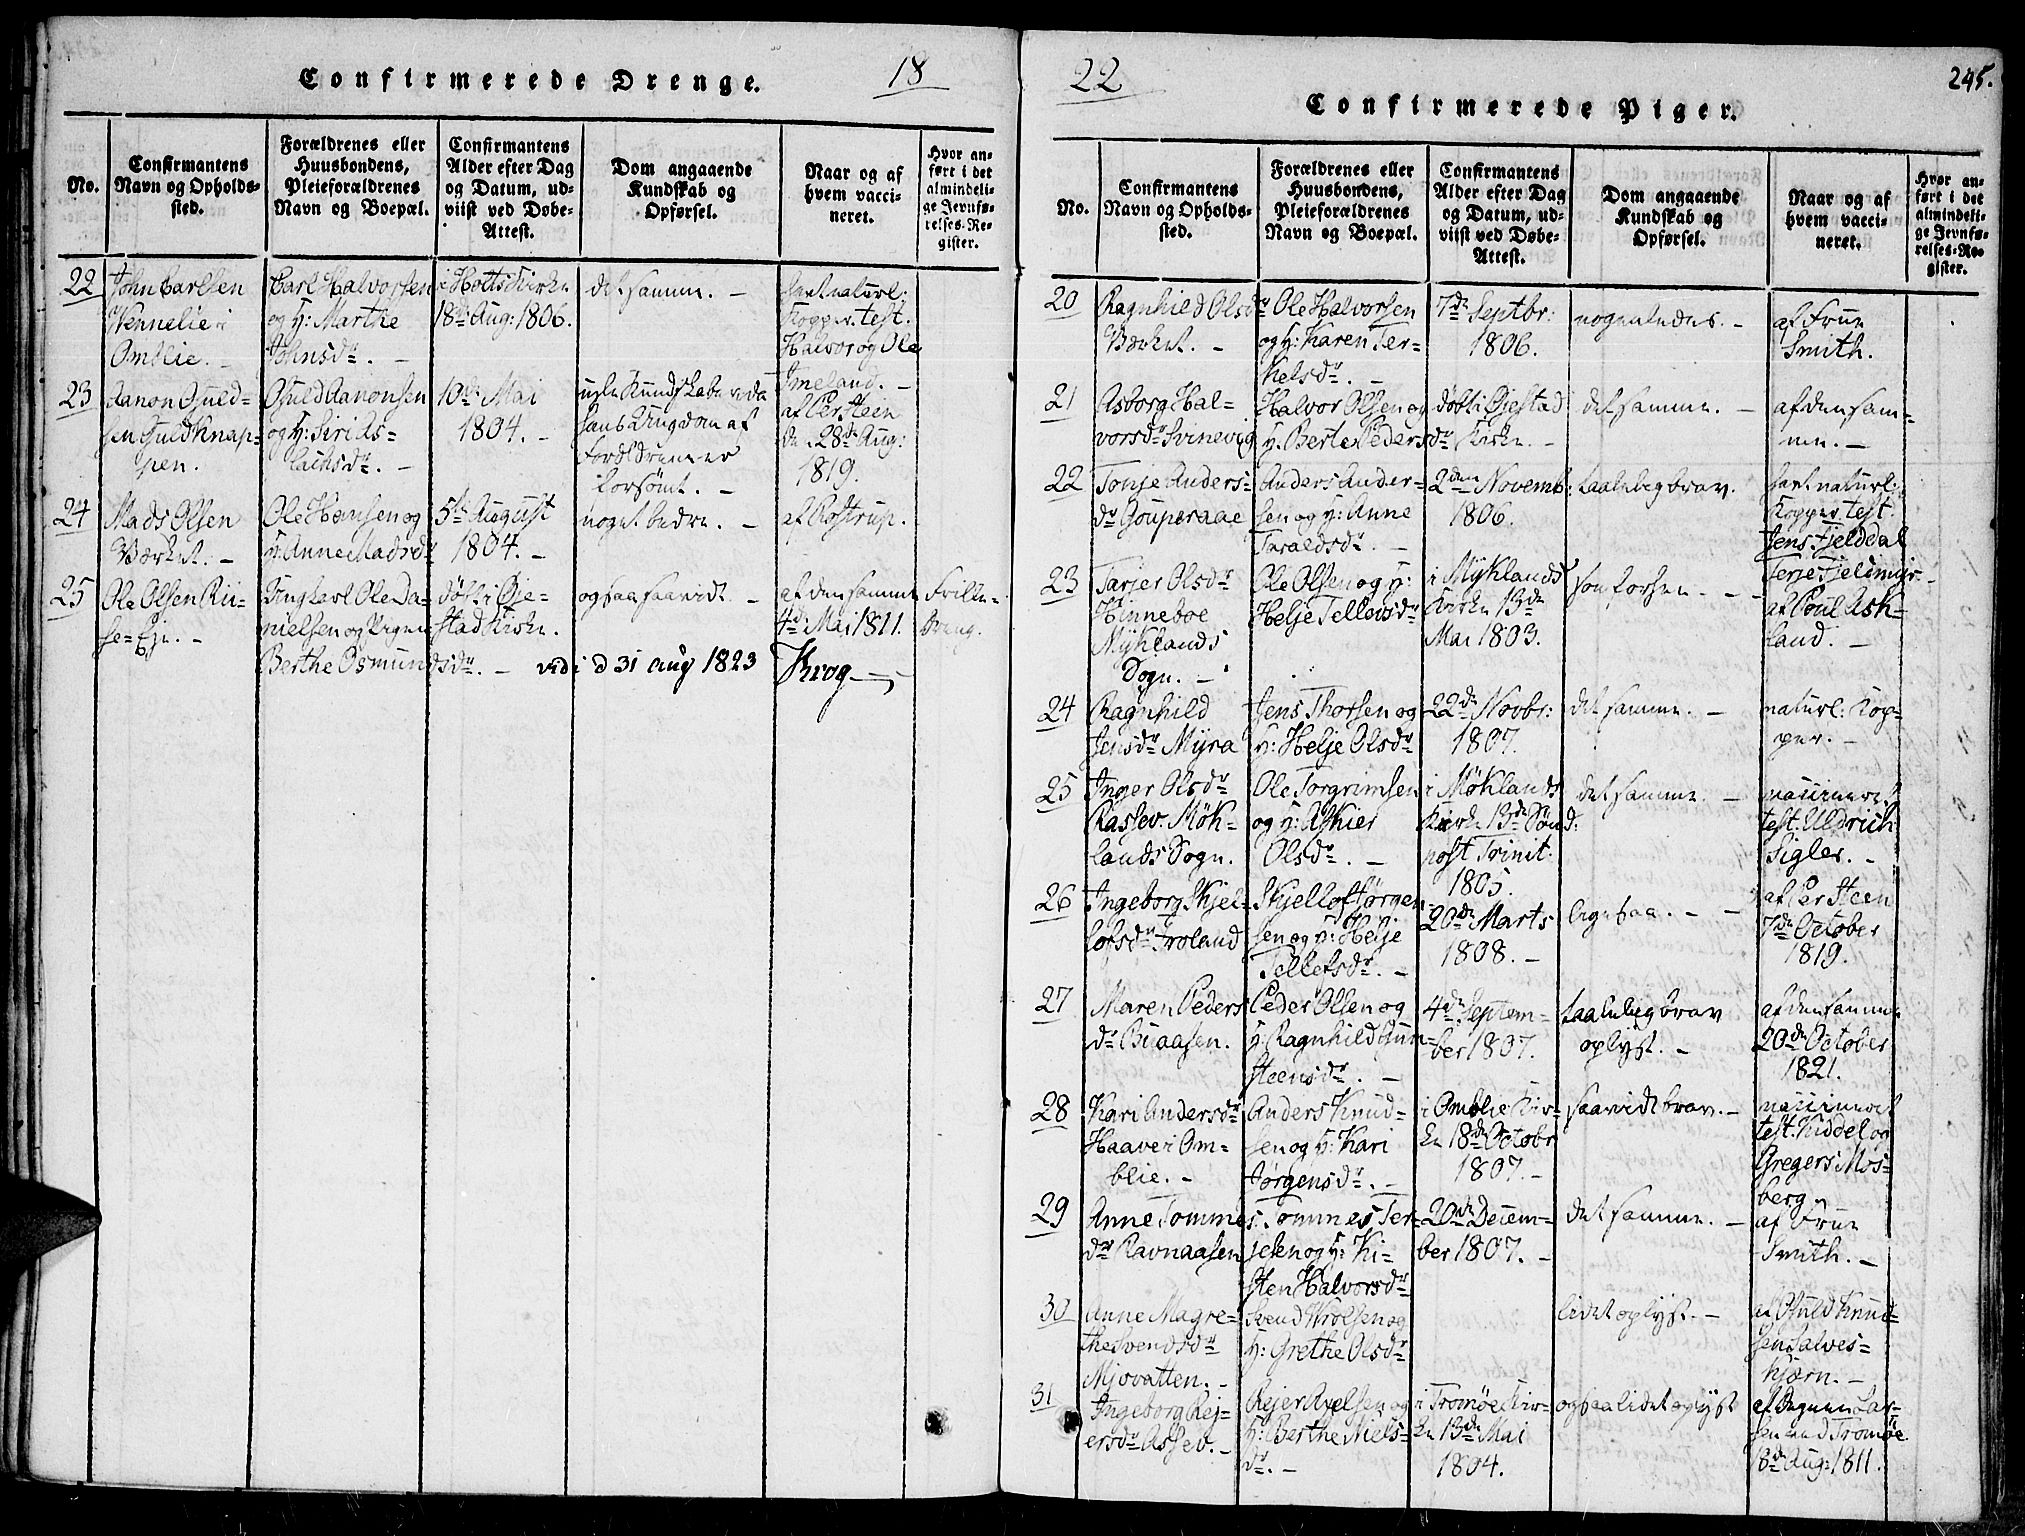 Confirmerede Drenge.
18
No.
Confirmantens
Navn og Opholds-
sted.
Forældrenes eller
Huusbondens,
Pleieforældrenes
Navn og Boepæl.
Confirmantens
Alder efter Dag
og Datum, ud-
viist ved Døbe-
Attest.
Dom angaaende
Kundskab og
Opførsel.
Naar og af
hvem vacci-
neret.
Hvor an-
ført i det
almindeli-
ge Jevnfø-
relses-Re-
gister.
22
John Carlsen
Vennelie i
Omblie. -
Carl Halvorsen
og H: Marthe
Johnsdr. -
i Hotts Kirke
18de Aug: 1806.
det samme. -
havt naturl:
Kopper. test.
Halvor og Ole
Imeland. -
23
Aanon Osuld-
sen Guldknap-
pen.
Osuld Aanonsen
og H: Sirids-
lachsdr. -
10de Mai
1804. -
usle Kundskaber da
hans Ungdom af
Forældrene er
forsømt. -
af Per Steen
d. 28de Aug:
1819.
24
Mads Olsen
Værket. -
Ole Hansen og
H: Anne Madsdr
5te August
1804. -
noget bedre. -
af Rostrup.
25
Ole Olsen Rii-
se-Eje. -
Ungkarl Ole Da-
nielsen og Pigen
Berthe Osmundsdr. -
døbt i Øje-
stad Kirke.
ogsaa saavidt. -
af den samme
4de Mai 1811.
Frille-
Dreng.
vidi d 31 aug 1823
Krog
22
245.
Confirmerede Piger.
No.
Confirmantens
Navn og Opholds-
sted.
Forældrenes eller
Huusbondens,
Pleieforældrenes
Navn og Boepæl.
Confirmantens
Alder efter Dag
og Datum, ud-
viist ved Døbe-
Attest.
Dom angaaende
Kundskab og
Opførsel.
Naar og af
hvem vacci-
neret.
Hvor an-
ført i det
almindeli-
ge Jevnfø-
relses-Re-
gister.
20
Ragnhild Olsdr
Værket. -
Ole Halvorsen
og H: Karen Ter-
kelsdr. -
7de Septbr:
1806.
nogenledes. -
af Frue
Smith.
21
Asborg Hal-
vorsdr Svinevig
Halvor Olsen og
H. Berte Pedersdr
døbt i Øjestad
Kirke. -
det samme. -
af den sam-
me. -
22
Tonje Anders-
dr Gouperaae
Anders Ander-
sen og H: Anne
Taraldsdr. -
2den Novemb:
1806.
taalelig brav.
havt naturl:
Kopper test.
Jens Fjelddal
Terje Fjelimyr
23
Tarjer Olsdr
Hinneboe
Myklands
Sogn. -
Ole Olsen og H:
Helje Tellevsdr
i Myklands
Kirke 13de
Mai 1803.
som forhen. -
af Poul Ask-
land. -
24
Ragnhild
Jensdr Myra
Jens Thorsen og
H: Helje Olsdr
22de Novbr:
1807.
det samme. -
naturl: Kop-
per. -
25
Inger Olsdr
Rassev. Møk-
lands Sogn.
Ole Torgrimsen
og H: Askier
Olsdr. -
i Møklands
Kirke 13de Sønd:
post Trinit:
1805.
det samme. -
vaccineret
test: Uldrich
Sigler. -
26
Ingeborg Skjel-
lofsdr Froland
Skjellof Jørgen-
sen og H: Helje
Tellefsdr. -
20de Marts
1808. -
ligesaa. -
af Per Steen
7de October
1819.
27
Maren Peders
dr Buaasen.
Peder Olsen og
H: Ragnhild Gun-
steensdr. -
4de Septem-
ber 1807.
taalelig brav
oplyst. -
af den samme
20de October
1821.
28
Kari Andersdr
Haaver i Om-
blie. -
Anders Knud-
sen og H: Kari
Jørgensdr. -
i Omblie Kir-
ke 18de Octobr
1807. -
saavidt brav. -
vaccineret
test: Kiddel og
Gregers Mos-
berg.
29
Anne Tommes
dr Ravnaasen
Tommes Ter-
jesen og H: Ki-
sten Halvorsdr
20de Decem-
ber 1807. -
det samme. -
af Frue
Smith. -
30
Anne Magre-
the Svendsdr
Mjovatten. -
Svend Wrolsen og
H: Grethe Olsdr
lidet oplyst. -
af Osuld Knud-
sen Salves-
kjærn. -
31
Ingeborg Rej-
ersdr Assev. -
Rejer Axelsen og
H: Berthe Niels-
dr. -
i Tromøe Kir-
ke 13de Mai
1804.
ogsaa lidet oplyst
af Degnen Lar-
sen ved Tromøe
18de Aug: 1811.